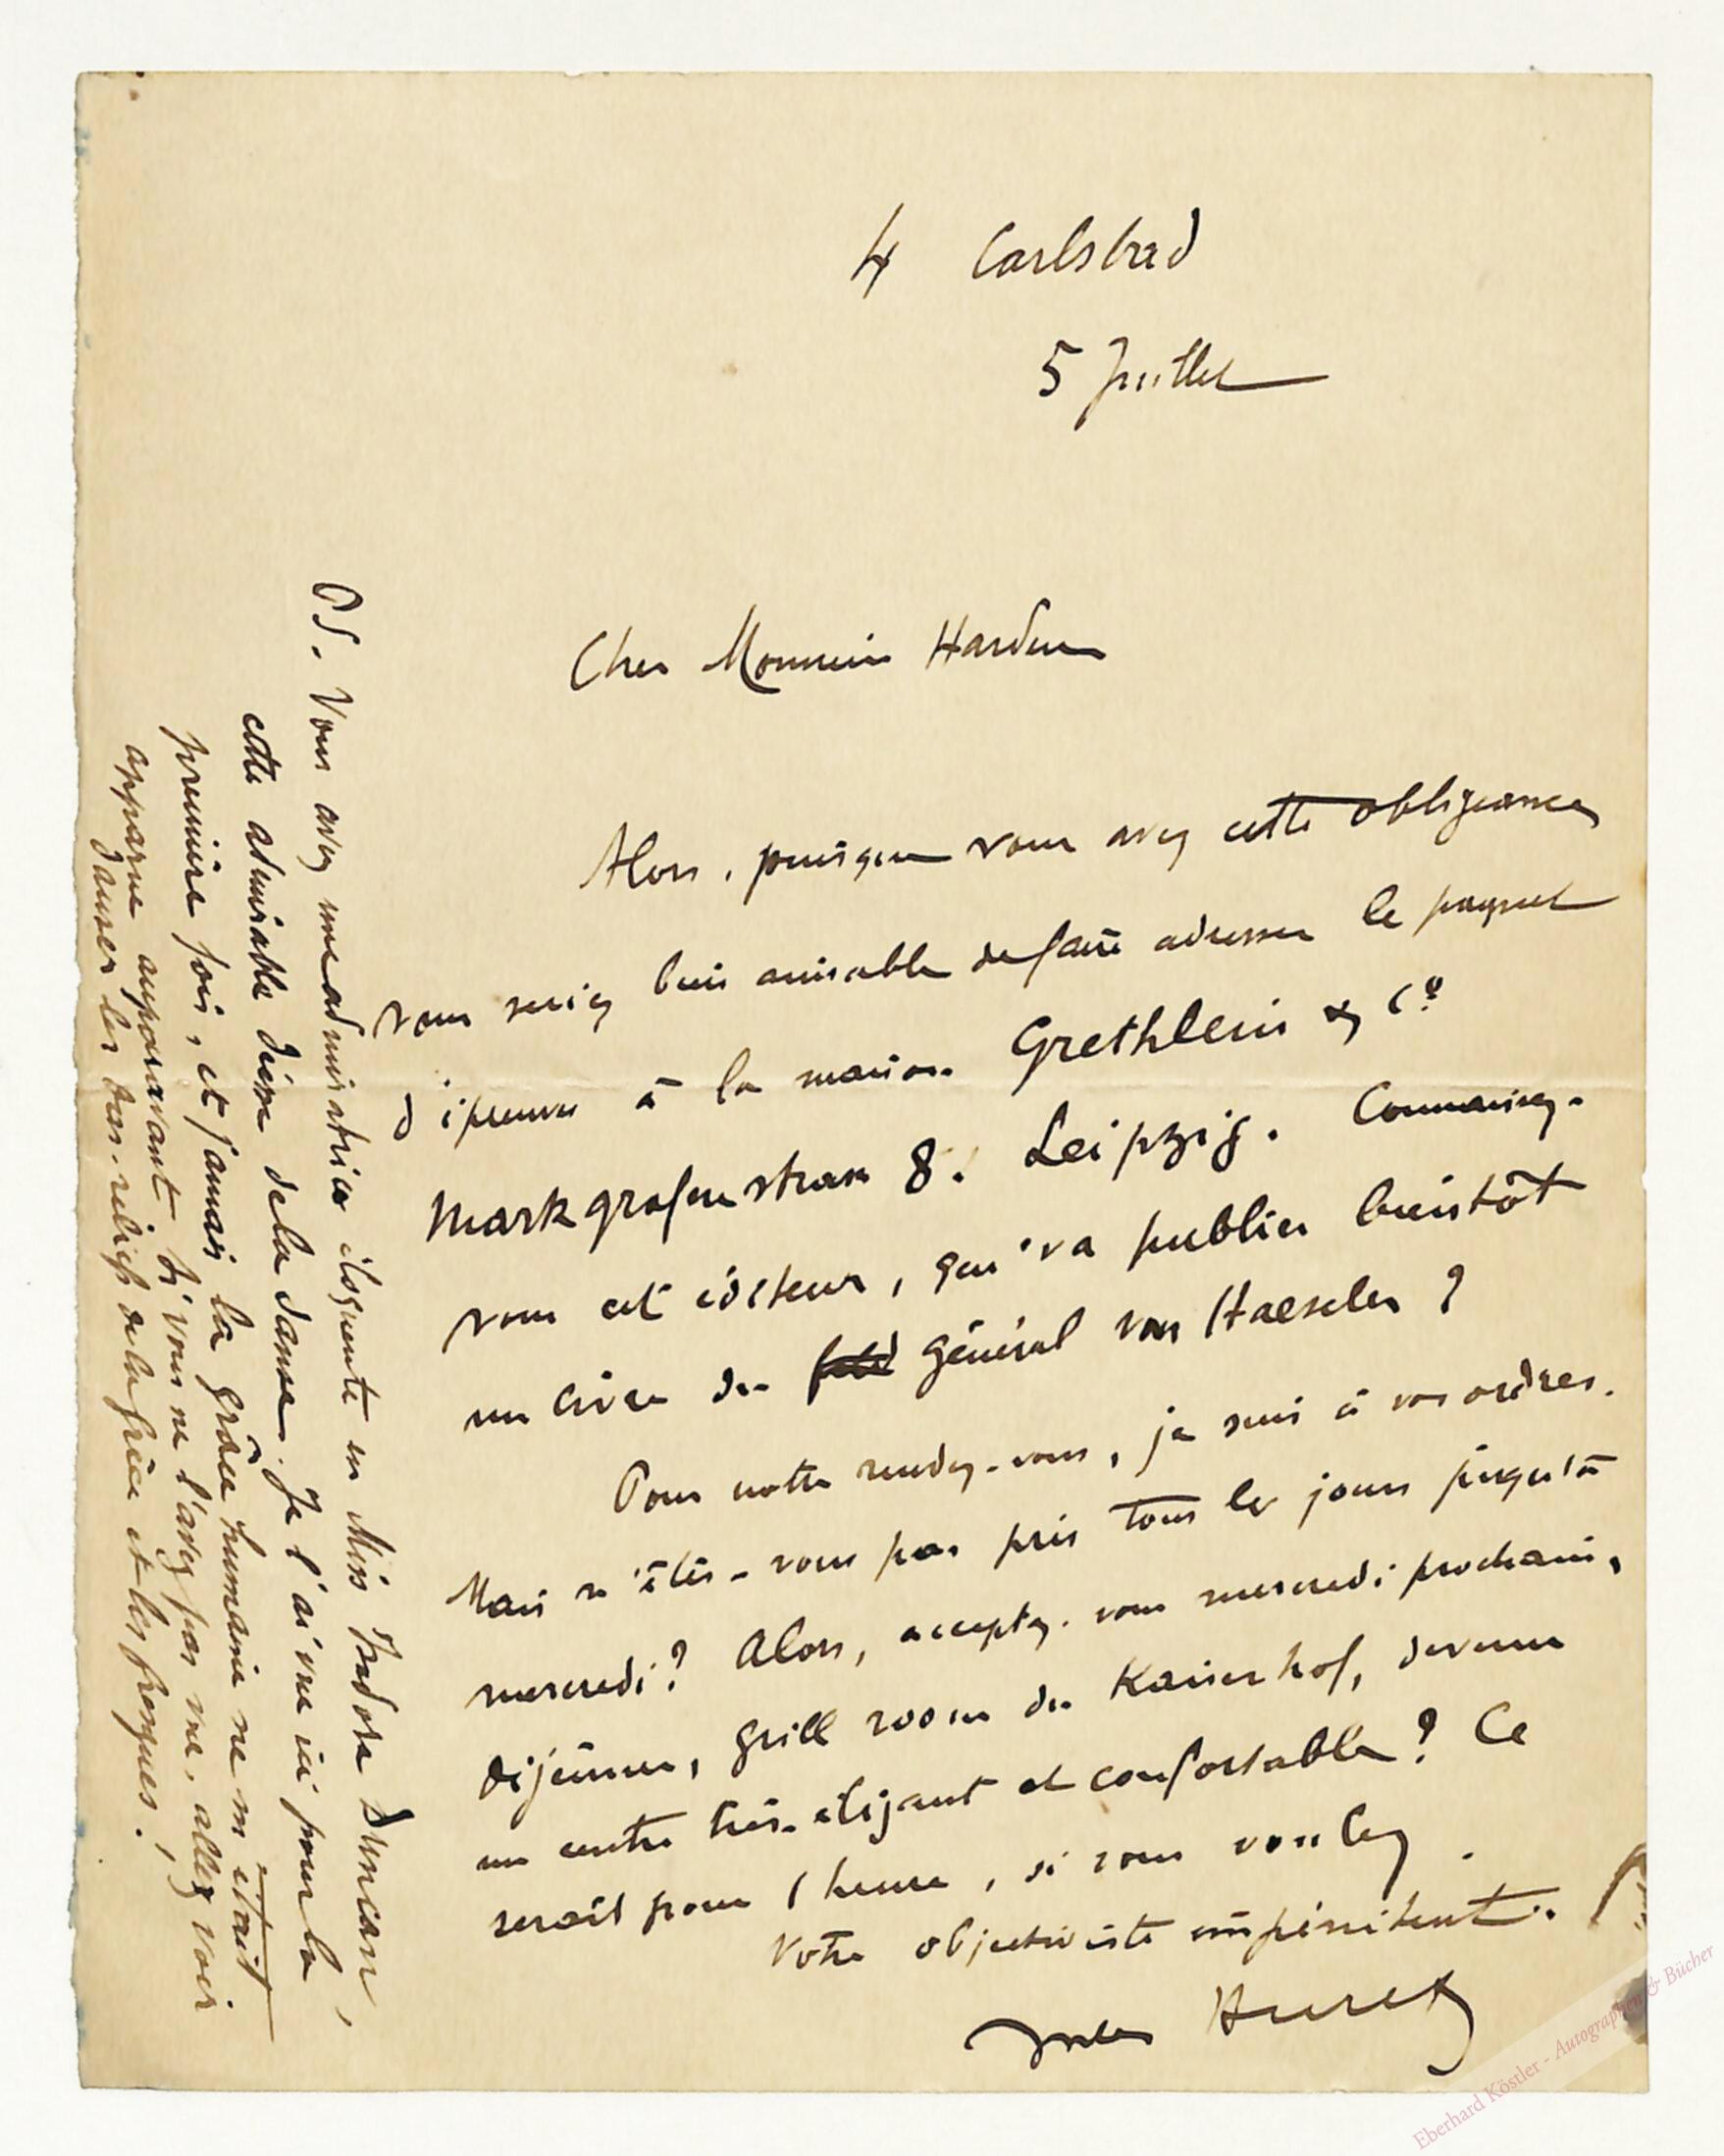 4 Carlsbad
5 Juillet
Cher Monsieur Harden
Alors, puisque vous avez cette obligeance
vous seriez bien aimable de faire adresser le paquet
d'épreuves à la maison Grethlein & Cº
Markgrafenstrasse 8. Leipzig. Connaissez-
vous cet éditeur, qui va publier bientôt
un livre du feld général von Haeseler ?
Pour notre rendez-vous, je suis à vos ordres.
Mais n'êtes-vous pas pris tous les jours jusqu'à
mercredi ? Alors, acceptez-vous mercredi prochain,
déjeuner, grill room du Kaiserhof, devenu
un centre très élégant et confortable ? Ce
serait pour 1 heure, si vous voulez.
Votre objectiviste impénitent.
Jules Huret
PS. Vous avez une admiratrice éloquente en Miss Isadora Duncan,
cette admirable Diane de la danse. Je l'ai vue ici pour la
première fois, et jamais la grâce humaine ne m'était
apparue auparavant. Si vous ne l'avez pas vue, allez voir
danser les bas-reliefs de la frise et les fresques !
Eberhard Köstler - Autographen & Bücher